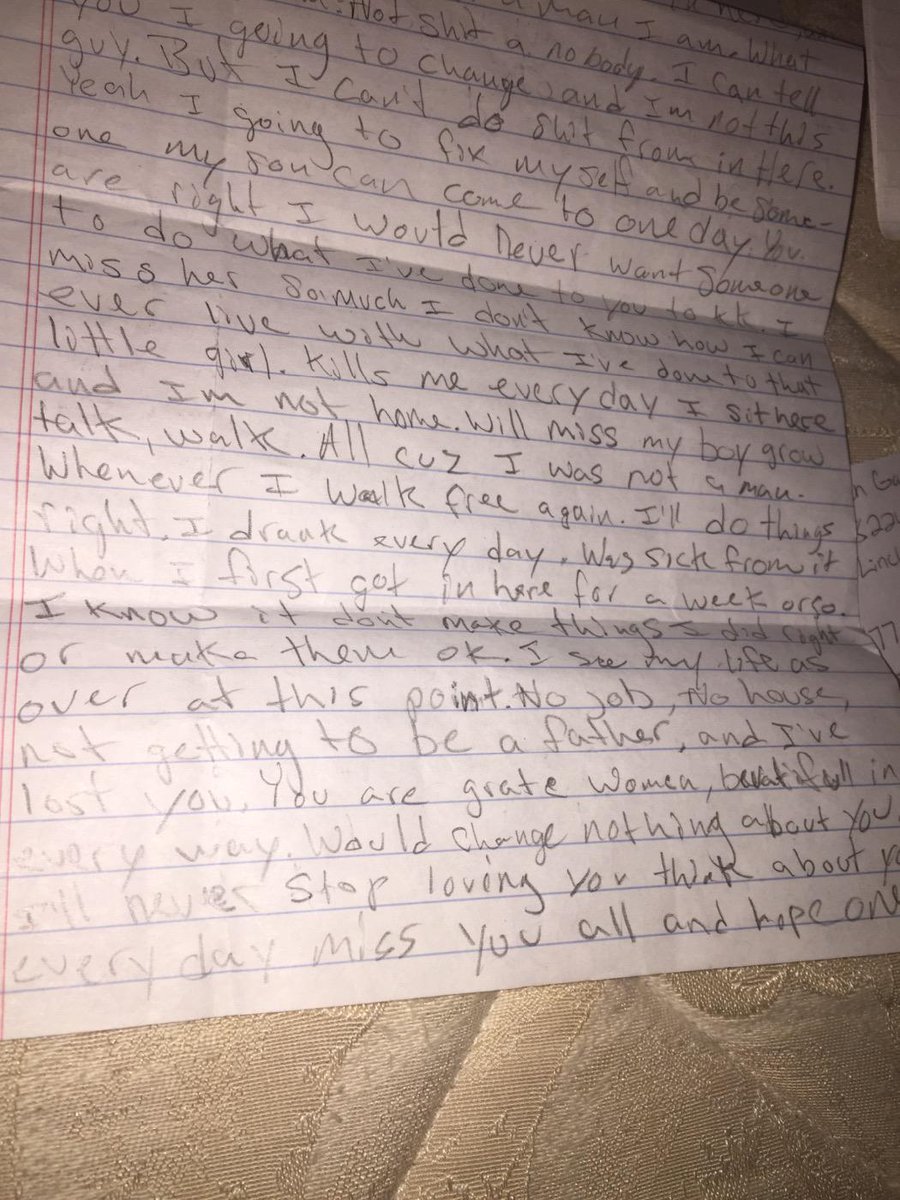 a man I am. What
Not shit a nobody. I can tell
you I going to change, and I'm not this
guy. But I can't do shit from in Here.
Yeah I going to fix myself and be some-
one my son can come to one day. You
are right I would Never want someone
to do what I've done to you to KK. I
miss her so much I don't know how I can
ever live with what I've done to that
little girl. Kills me every day I sit here
and I'm not home. Will miss my boy grow
talk, walk. All cuz I was not a man.
Whenever I walk free again. I'll do things
right. I drank every day. Was sick from it
When I first got in here for a week or so.
I know it dont make things I did right
or make them ok. I see my life as
over at this point. No job, No house,
not getting to be a father, and I've
lost you. You are grate women, beuatifull in
every way. Would change nothing about you
I'll never stop loving you think about
every day miss you all and hope one